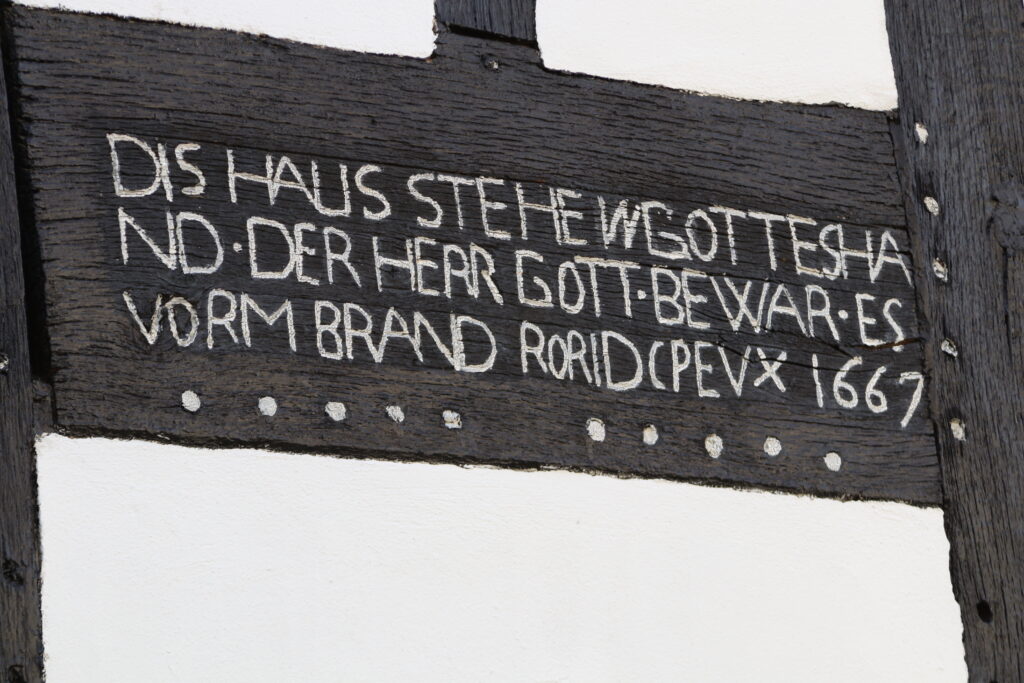 DIS HAUS STEHE IN GOTTES HA
ND · DER HERR GOTT · BEWAR · ES
VORM BRAND RORID(PEVX 1667